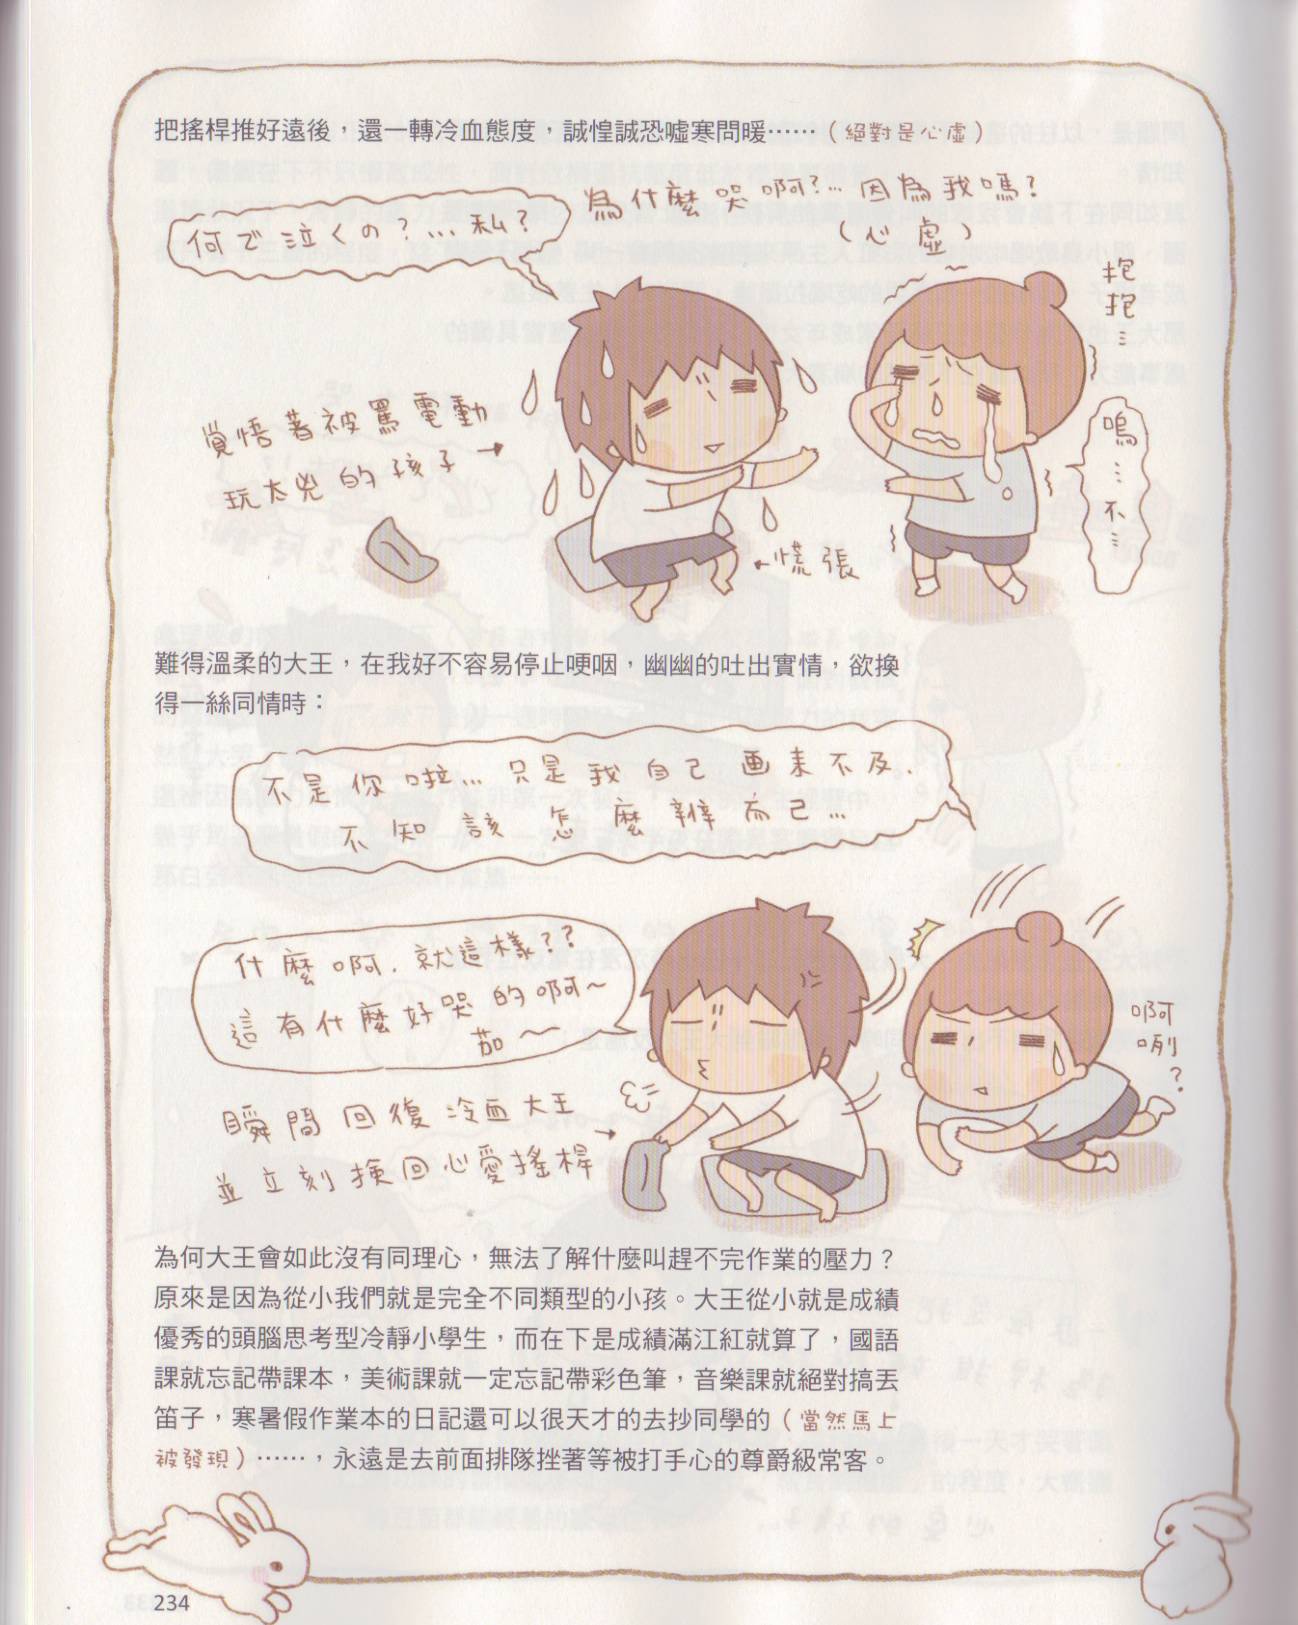 把搖桿推好遠後，還一轉冷血態度，誠惶誠恐噓寒問暖……（絕對是心虛）
何で泣くの？…私？
為什麼哭啊？… 因為我嗎？
（心虛）
抱抱…
嗚…不…
覺悟著被罵電動
玩太兇的孩子
慌張
難得溫柔的大王，在我好不容易停止哽咽，幽幽的吐出實情，欲換
得一絲同情時：
不是你啦… 只是我自己画来不及.
不知該怎麼辦而已…
什麼啊. 就這樣？？
這有什麼好哭的啊～
茄～
啊咧？
瞬間回復冷血大王
並立刻撿回心愛搖桿
為何大王會如此沒有同理心，無法了解什麼叫趕不完作業的壓力？
原來是因為從小我們就是完全不同類型的小孩。大王從小就是成績
優秀的頭腦思考型冷靜小學生，而在下是成績滿江紅就算了，國語
課就忘記帶課本，美術課就一定忘記帶彩色筆，音樂課就絕對搞丟
笛子，寒暑假作業本的日記還可以很天才的去抄同學的（當然馬上
被發現）……，永遠是去前面排隊挫著等被打手心的尊爵級常客。
234